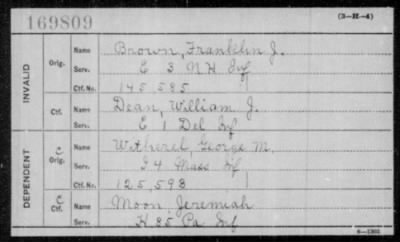 169809
(3-H-4)
INVALID
Orig.
Name Brown, Franklin J.
Serv. E 3 N H Inf
Ctf. No. 145,585
Ctf.
Name Dean, William J.
Serv. E 1 Del Inf
DEPENDENT
C
Orig.
Name Witherel, George M.
Serv. I 4 Mass Inf
Ctf. No. 125,598
C
Ctf.
Name Moon, Jeremiah
Serv. K 85 Pa Inf